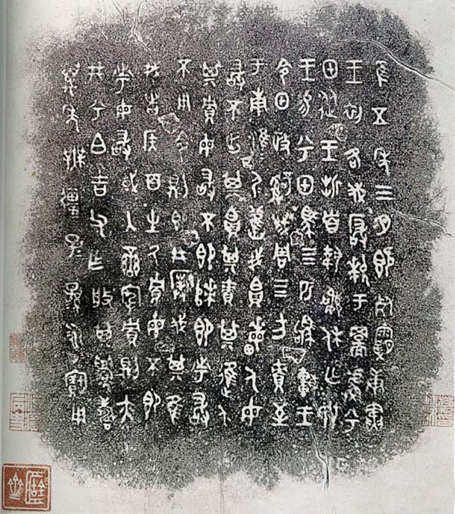 隹五年三月既死霸庚寅
王初各伐玁狁于兮
甲從王折首執訊休亡敃
王易兮甲馬四匹駒車王
令甲政𤔲成周四方責至
于南淮夷淮夷舊我帛畮人毋
敢不出其帛其責其進人
其貯毋敢不即次即市敢
不用令則即井撲伐其隹
我者侯百生厥貯毋不即
市毋敢或入蠻宄貯則亦
井兮白吉父乍般其眉壽
萬年無疆子子孫孫永寶用